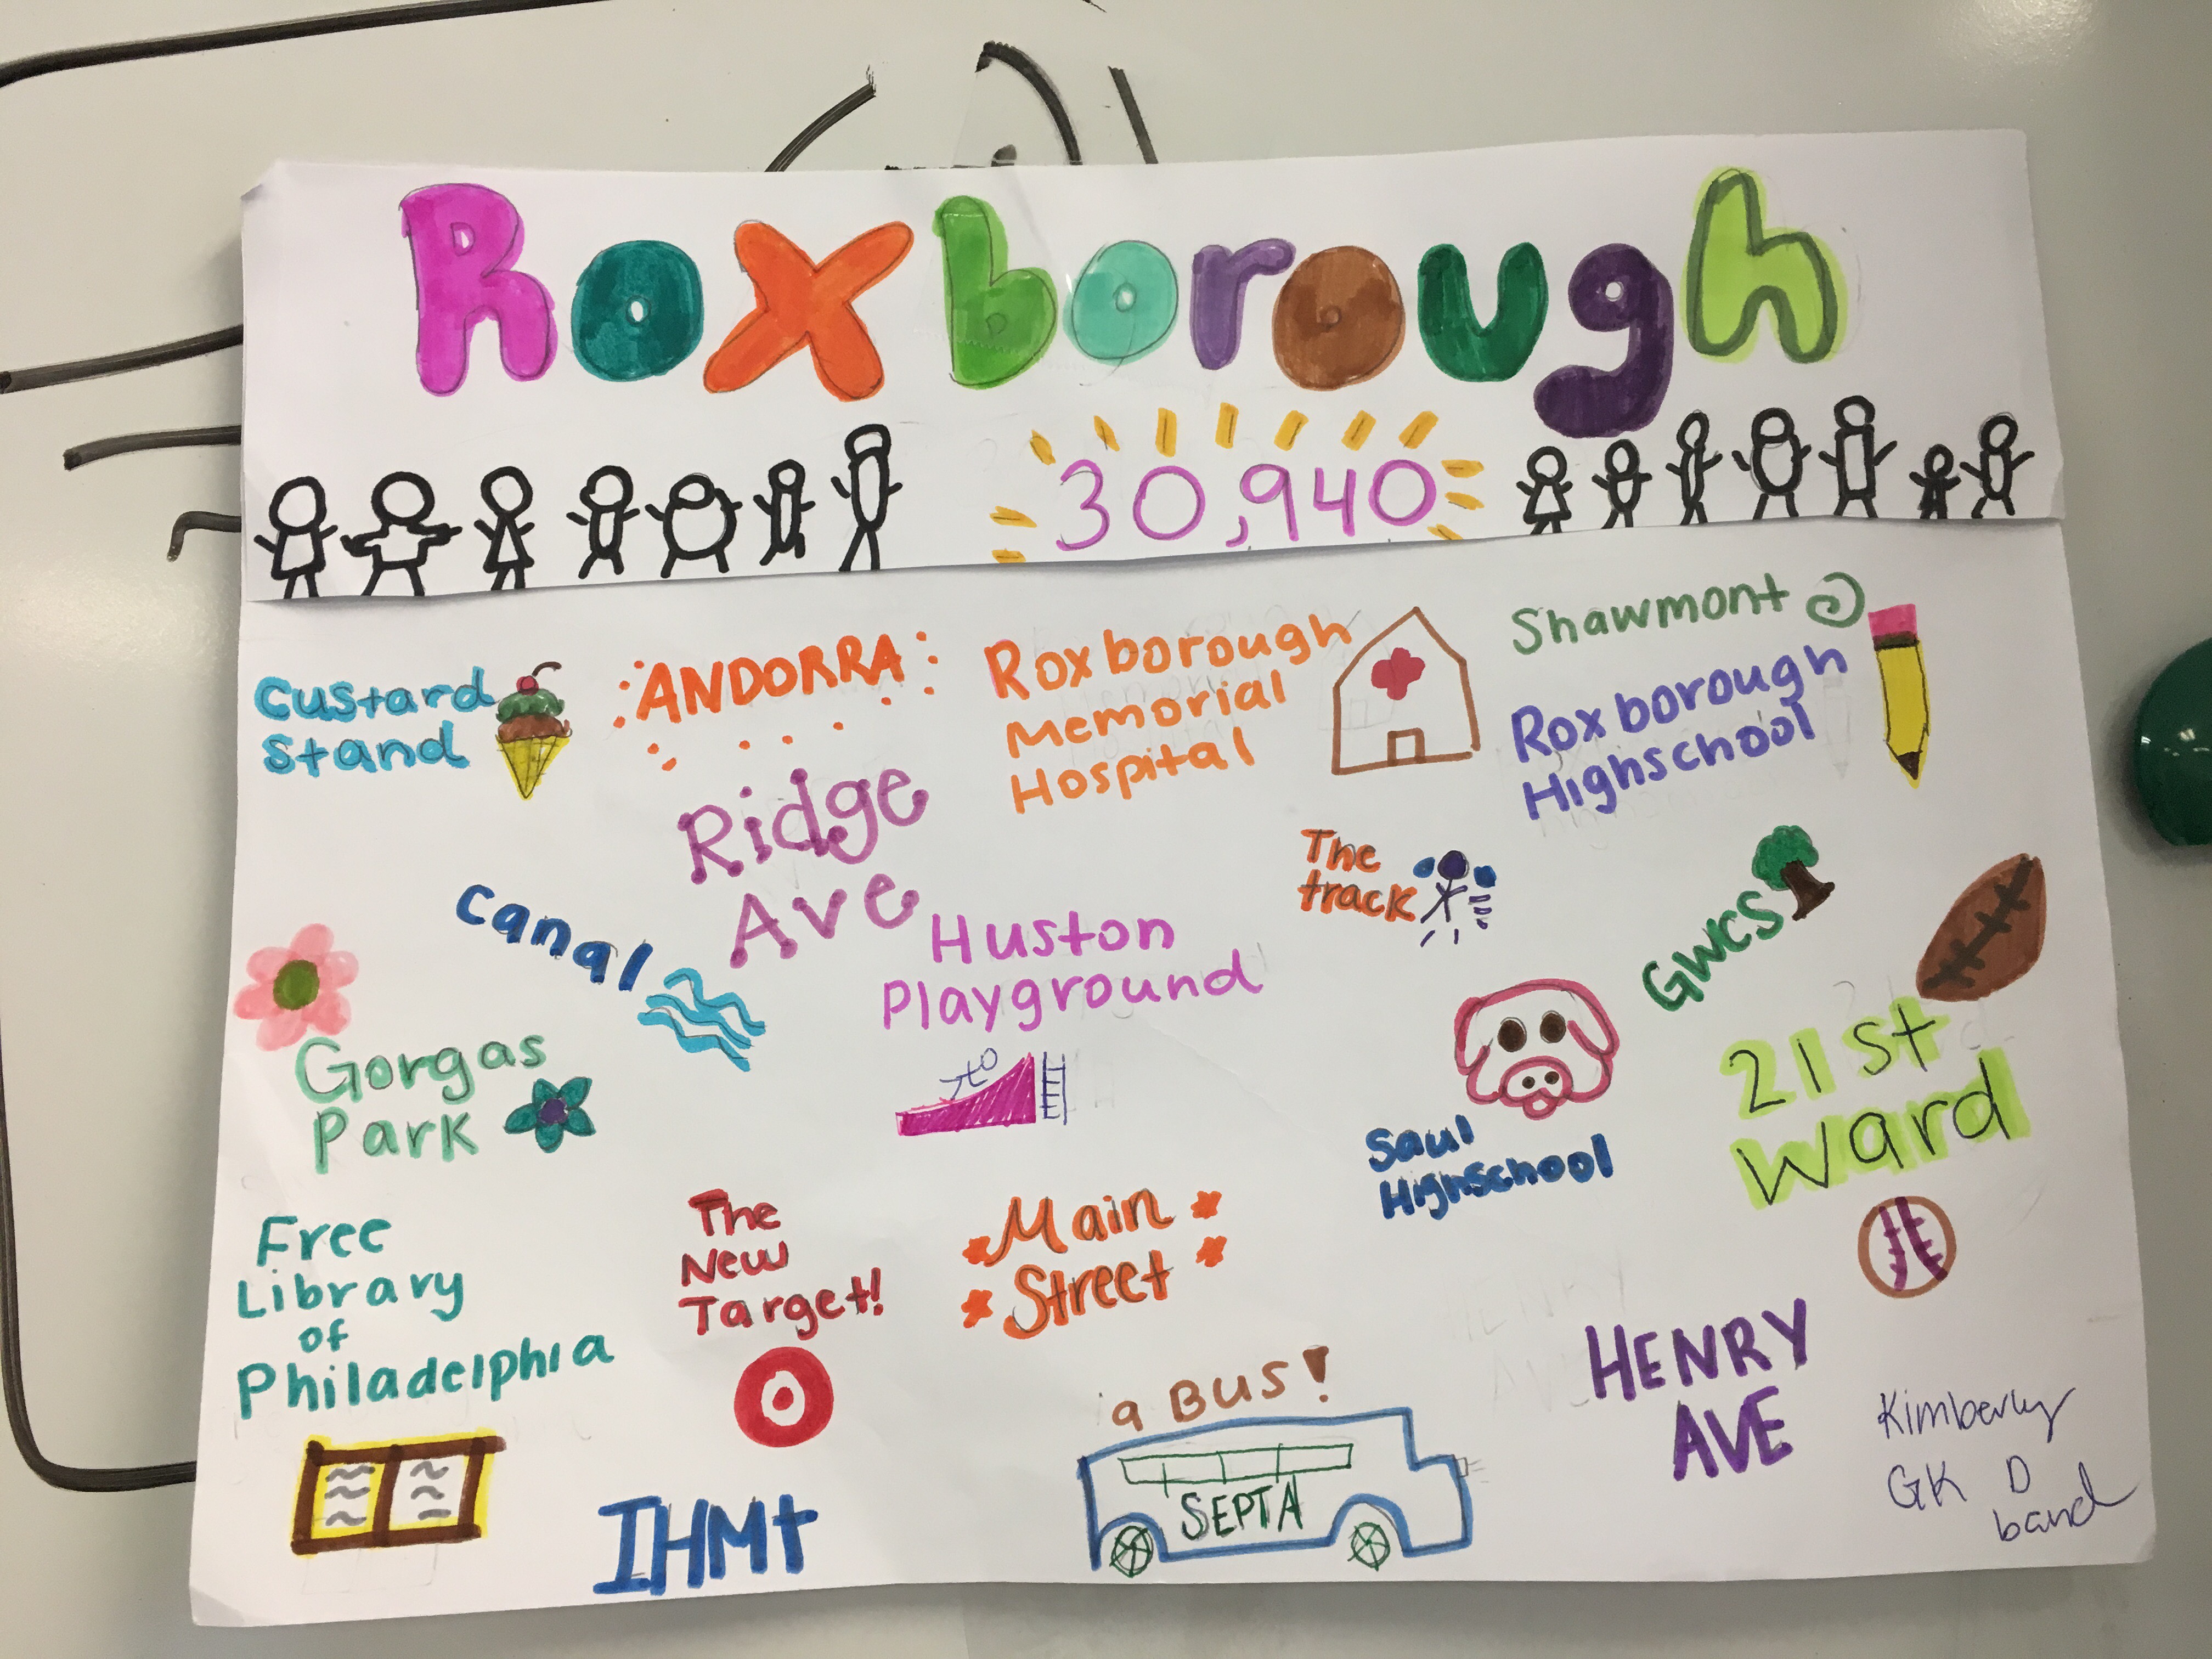 Roxborough
30,940
Custard
Stand
ANDORRA
Roxborough
Memorial
Hospital
Shawmont
Roxborough
Highschool
Ridge
Ave
The
track
GWCS
canal
Huston
Playground
Gorgas
Park
Saul
Highschool
21st
Ward
Free
Library
of
Philadelphia
The
New
Target!
Main
Street
a BUS!
SEPTA
HENRY
AVE
IHMt
Kimberly
GK D
band